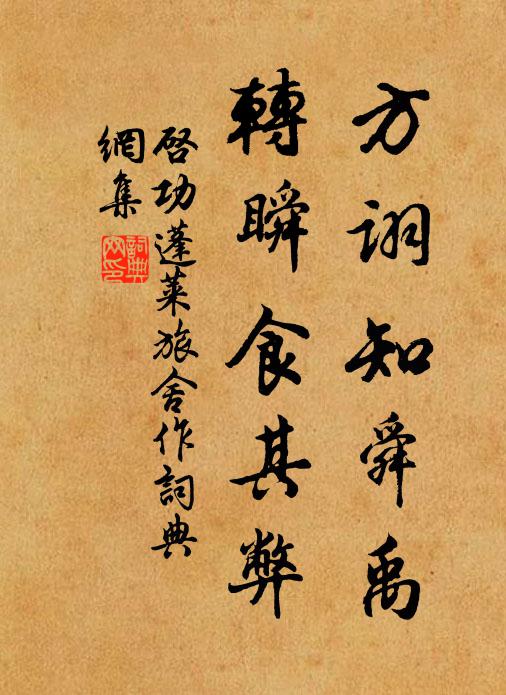 方詡知舜禹
轉瞬食其弊
啓功蓬萊旅舍作詞典
網集
詞典
网印